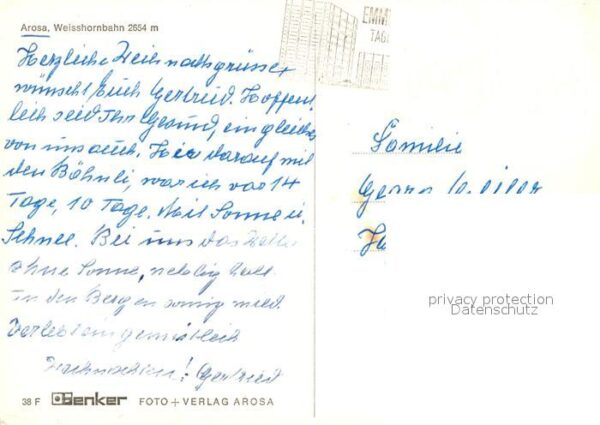 Arosa, Weisshornbahn 2654 m
EMM
TAG
Herzliche Weihnachtsgrüsse
wünscht Euch Gertrud. Hoffent
lich seid Ihr Gesund, ein gleiches
von uns auch. Hie darauf mit
den Böhnli, war ich vor 14
Tage, 10 Tage. Mit Sonne u.
Schnee. Bei uns das
ohne Sonne, neblig kalt
in den Bergen sonnig mild.
Verlebt ein gemütlich
! Gertrud
Familie
privacy protection
Datenschutz
38 F Benker FOTO + VERLAG AROSA